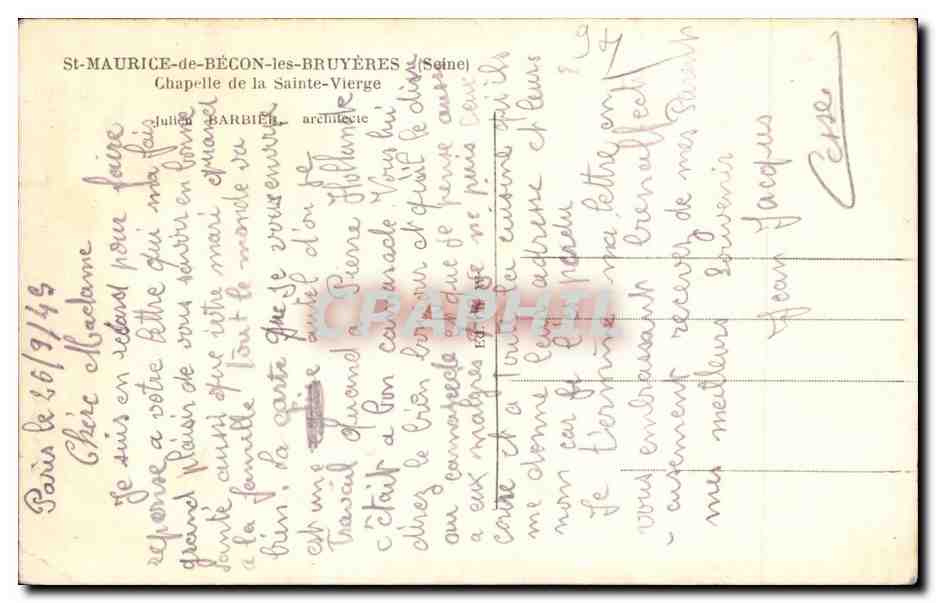 St-MAURICE-de-BÉCON-les-BRUYÈRES (Seine)
Chapelle de la Sainte-Vierge
Julien BARBIER, architecte
Paris le 26/9/43
Chère Madame
Je suis en retard pour faire
reponse a votre lettre qui ma fais
grand plaisir de vous savoir en bonne
santé aussi que votre mari quand
a la famille tout le monde va
bien. La carte que je vous envoie
est une autel d'ou je
travail quand a Pierre Hollande
c'était a bon camarade Vous lui
direz le bien bonjour et qu'il le dise
au camarade que je pense aussi
a eux malgres que je ne puis ceux
a la cuisine qu'ils
me donne leur adresse et leurs
non car je l'ai perdu
Je termine ma lettre en
vous embrassant bien affect
-eusement recevez de mes
mes meilleurs souvenir
Jean Jacques
ED.
CPAPHIL